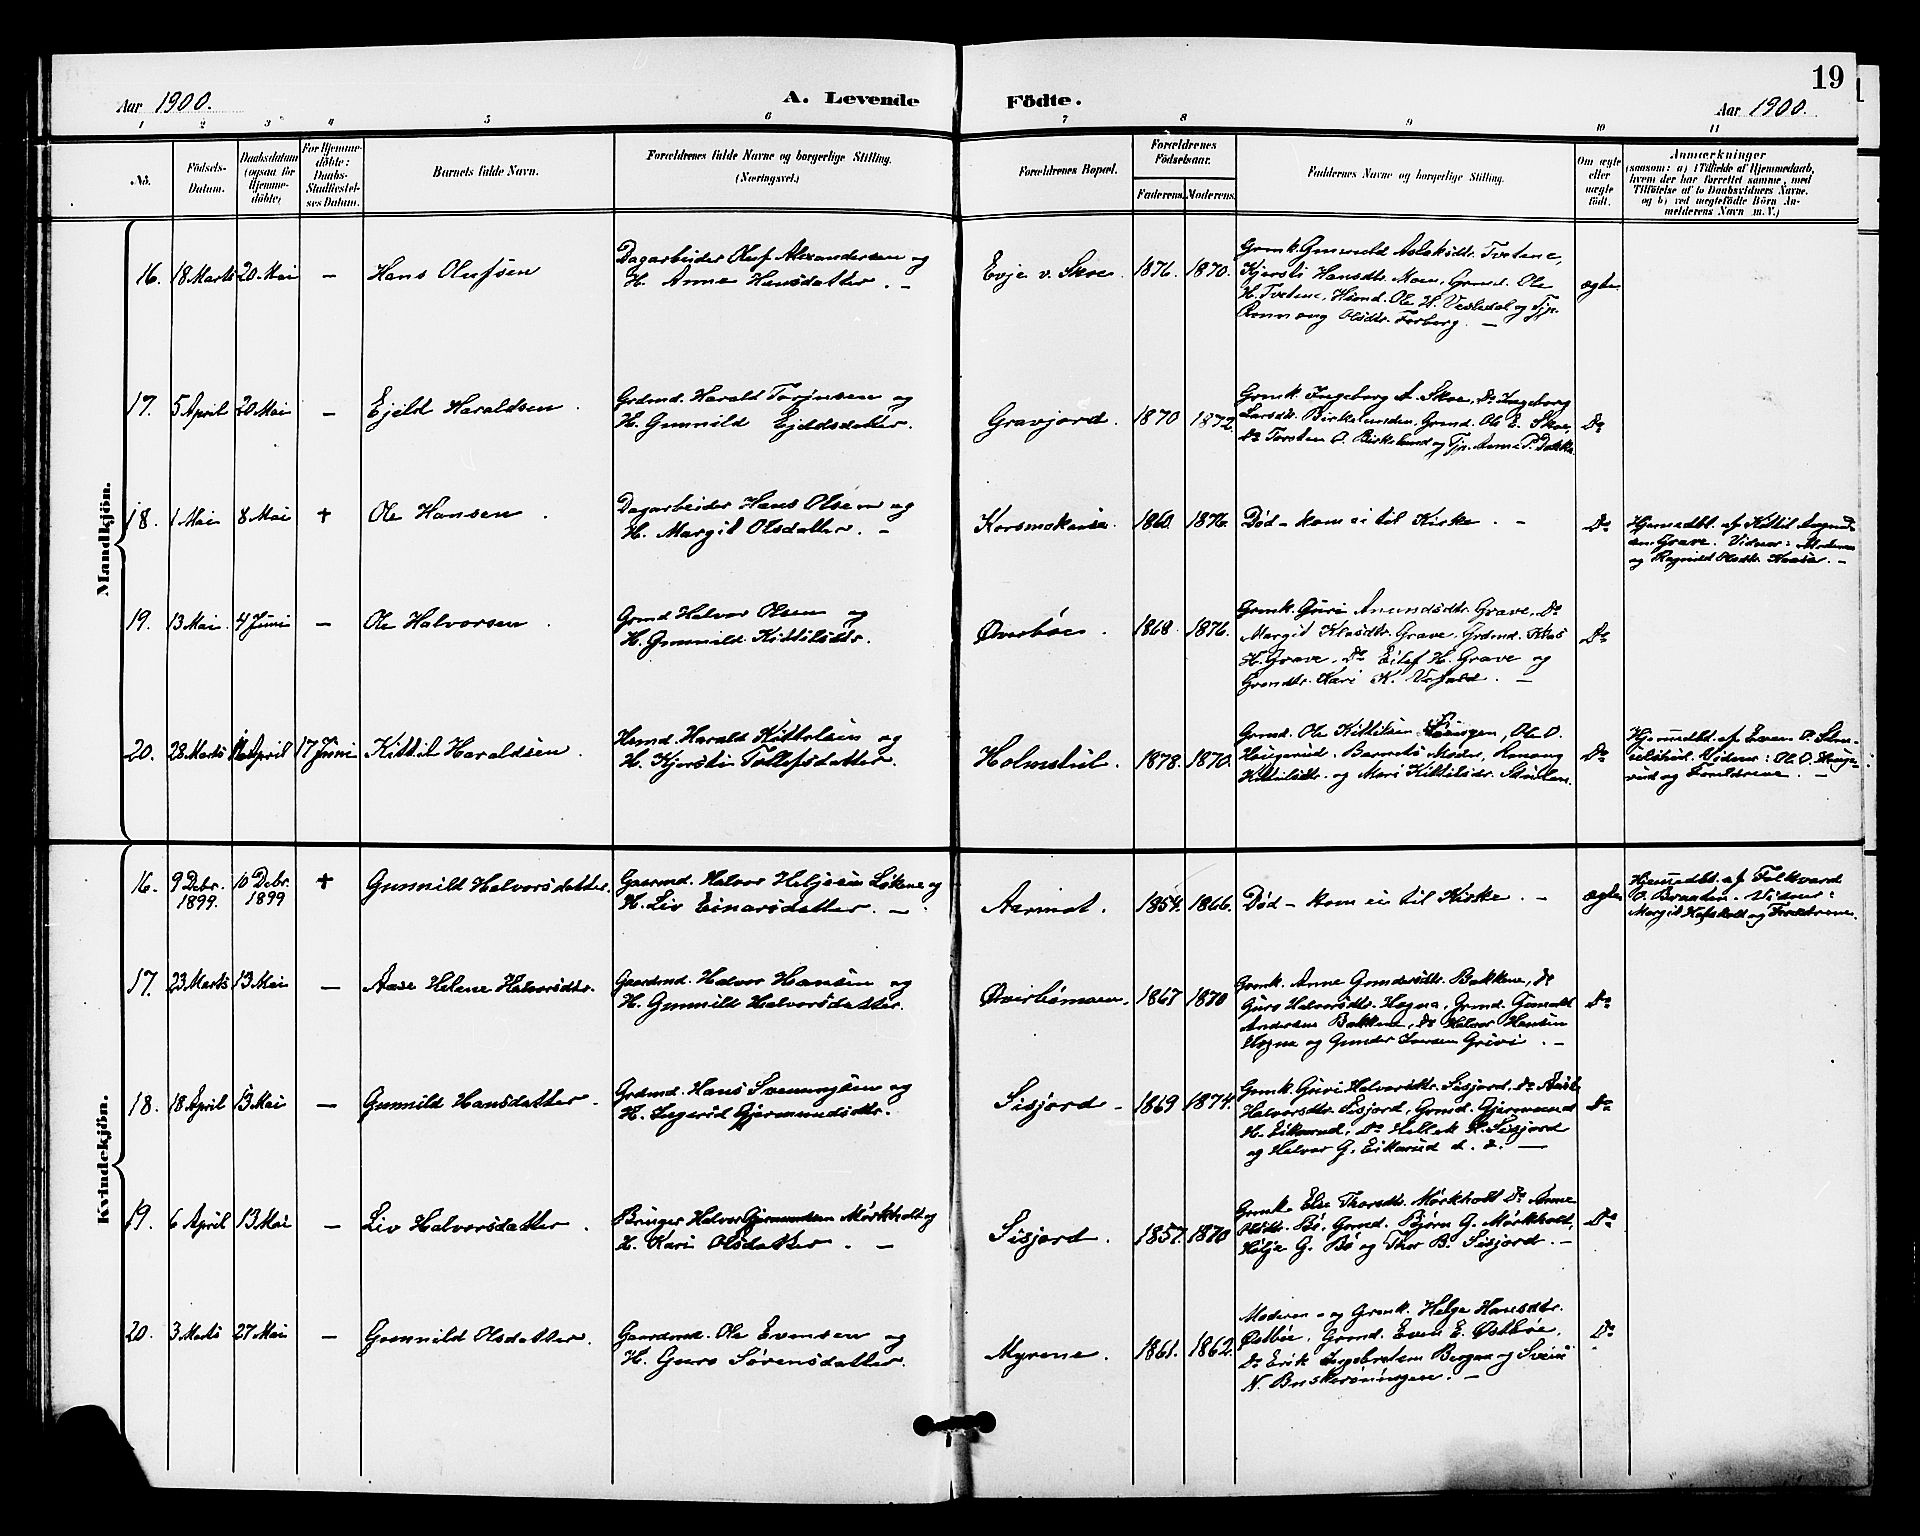 19
Aar 1900.
A. Levende
Födte.
Aar 1900.
1 2 3 4 5 6 7 8 9 10 11
No.
Födsels-
Datum.
Daabsdatum
(ogsaa for
Hjemme-
döbte)
For Hjemme-
döbte:
Daabs-
Stadfæstel-
ses Datum.
Barnets fulde Navn.
Forældrenes fulde Navne og borgerlige Stilling.
(Næringsvei.)
Forældrenes Bopæl.
Forældrenes
Födselsaar.
Faderens. Moderens.
Faddernes Navne og borgerlige Stilling.
Om ægte
eller
uægte
födt.
Anmærkninger
(saasom: a) i Tilfælde af Hjemmedaab,
hvem der har forrettet samme, med
Tilföielse af to Daabsvidners Navne,
og b) ved uegtefödte Börn An-
melderens Navn m. V.)
Mandkjön.
16. 18 Marts 20 Mai – Hans Olufsen
Dagarbeider Oluf Alexandersen og
H. Anne Hansdatter. –
Evje v. Skoe. 1876. 1870.
Grmk. Gunnild Aslaksdtr. Tvetene,
Kjersti Hansdtr. Moen, Grmd. Ole
H. Tvetene, Hsmd. Ole H. Vesledal og Tjp.
Rannaug Olsdtr. Forberg. –
ægte
17. 5 April 20 Mai – Ejeld Haraldsen.
Grdmd. Harald Torjusen og
H. Gunnild Ejeldsdatter.
Gravjord. 1870 1872
Grmk. Ingeborg A. Skoe, Do Ingeborg
Larsdtr. Birkelunden, Grmd. Ole E. Skoe,
Do Torsten O. Birkelund og Tjp. Anne P.
Do
18. 1 Mai 8 Mai + Ole Hansen.
Dagarbeider Hans Olsen og
H. Margit Olsdatter. –
1860. 1876. Död – kom ei til Kirke. – Do
Hjemmedbt. af Kittil
Grave. Vidner: Moderen
og Ragnild Olsdtr. –
19. 13 Mai. 4 Juni – Ole Halvorsen.
Grmd Halvor Olsen og
H. Gunnild Kittilsdtr.
Överböe. 1868. 1876.
Grmk. Guri Anundsdtr. Grave, Do
Margit Klasdtr. Grave, Grdmd. Klas
H. Grave, Do Eilef H. Grave og
Grmdtr. Kari K. –
Do
20. 28 Marts April 17 Juni Kittil Haraldsen.
Hsmd. Harald Kittilsen og
H. Kjersti Tollefsdatter.
Holmstul. 1878. 1870.
Grmd. Ole Kittilsen Ole O.
Haugerud, Barnets Moder,
Kittilsdtr. og Mari Kittilsdtr.
Do
Hjemmedbt. af Even O.
Vidner: Ole O. Hauge-
rud og Forældrene. –
Kvindekjön.
16. 9 Debr. 1899. 10 Debr. 1899 + Gunnild Halvorsdatter.
Gaardmd. Halvor Heljesen Lökene og
H. Liv Einarsdatter. –
Aarmot. 1854. 1866. Död – kom ei til Kirke. – ægte
Hjemmedbt. af Folkvard
O. Braaten. Vidner:
Margit og Forældrene.
17. 23 Marts 13 Mai – Aase Helene Halvorsdtr.
Gaardmd. Halvor Hansen og
H. Gunnild Halvorsdatter.
1867 1870
Grmk. Anne Gundersdtr. Bakkene, Do
Guro Halvorsdtr. Hogna, Grmd. Gunnald
Andersen Bakkene, Do Halvor Hansen
Hogna og Gunder Larsen Grivi. –
Do
18. 18 April 13 Mai – Gunnild Hansdatter.
Grdmd. Hans Sveinungsen og
H. Ingerid Gjermundsdtr.
Sisjord – 1869 1874.
Grmk. Guri Halvorsdtr. Sisjord, Do
Halvorsdtr. Sisjord, Grmd. Gjermund
H. Eikerud, Do Hellek H. Sisjord
og Halvor G. Eikerud d. s. –
Do
19. 6 April 13 Mai – Liv Halvorsdatter.
Bruger Halvor Gjermundsen Mörkholt og
H. Kari Olsdatter. –
Sisjord. 1857. 1870
Grmk. Else Thorsdtr. Mörkholt Do Anne
Olsdtr. Bö, Grmd. Björn G. Mörkholt,
Helje G. Bö og Thor B. Sisjord. –
Do
20. 3 Marts 27 Mai – Gunnild Olsdatter.
Gaardmd. Ole Evensen og
H. Guro Sörensdatter.
Myrene. 1861. 1862.
Moderen – og Grmk. Helge Hansdtr.
Östböe, Grmd. Even E. Östböe,
Do Erik Ingebretsen Bergan og Svein
N. –
Do